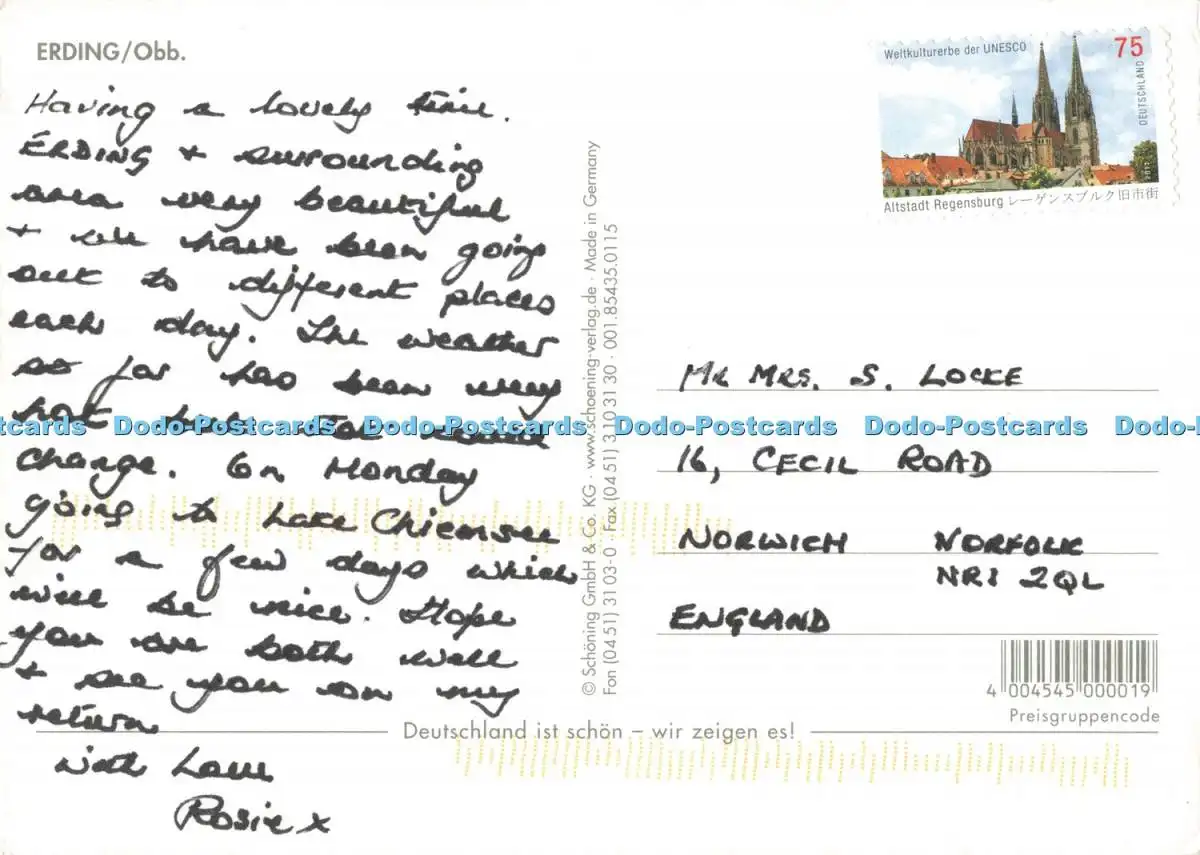 ERDING/Obb.
Having a lovely time.
ERDING + surrounding
area very beautiful
+ we have been going
out to different places
each day. The weather
so far has been very
hot but
change. On Monday
going to Lake Chiemsee
for a few days which
will be nice. Hope
you are both well
+ see you on my
return
With Love
Rosie x
© Schöning GmbH & Co. KG · www.schoening-verlag.de · Made in Germany
Fon (04 51) 31 03-0 · Fax (04 51) 3 10 31 30 · 001.85435.0115
Weltkulturerbe der UNESCO
75
DEUTSCHLAND
Altstadt Regensburg レーゲンスブルク旧市街
MR MRS. S. LOCKE
16, CECIL ROAD
NORWICH NORFOLK
NR1 2QL
ENGLAND
4 004545 000019
Preisgruppencode
Deutschland ist schön – wir zeigen es!
Dodo-Postcards Dodo-Postcards Dodo-Postcards Dodo-Postcards